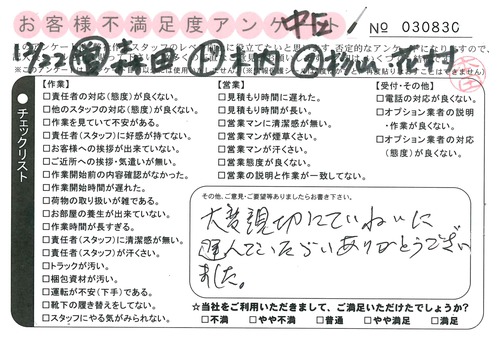 お客様不満足度アンケ
中区
No 03083
12/22 営 森田
【作業】
□責任者の対応(態度)が良くない。
□他のスタッフの対応(態度)が良くない。
□作業を見ていて不安がある。
□責任者(スタッフ)に好感が持てない。
□お客様への挨拶が出来ていない。
□ご近所への挨拶・気遣いが無い。
□作業開始前の内容確認がなかった。
□作業開始時間が遅れた。
□荷物の取り扱いが雑である。
□お部屋の養生が出来ていない。
□作業時間が長すぎる。
□責任者(スタッフ)に清潔感が無い。
□責任者(スタッフ)が汗くさい。
□トラックが汚い。
□梱包資材が汚い。
□運転が不安(下手)である。
□靴下の履き替えをしてない。
□スタッフにやる気がみられない。
【営業】
□見積もり時間に遅れた。
□見積もり時間が長い。
□営業マンに清潔感が無い。
□営業マンが煙草くさい。
□営業マンが汗くさい。
□営業態度が良くない。
□営業の説明と作業が一致してない。
【受付・その他】
□電話の対応が良くない。
□オプション業者の説明
・作業が良くない。
□オプション業者の対応
(態度)が良くない。
チェックリスト
その他、ご意見・ご要望等ありましたらお書き下さい。
大変親切にていねいに
運んでいただいありがとうござい
ました。
☆当社をご利用いただきまして、ご満足いただけたでしょうか?
□不満 □やや不満 □普通 □やや満足 □満足